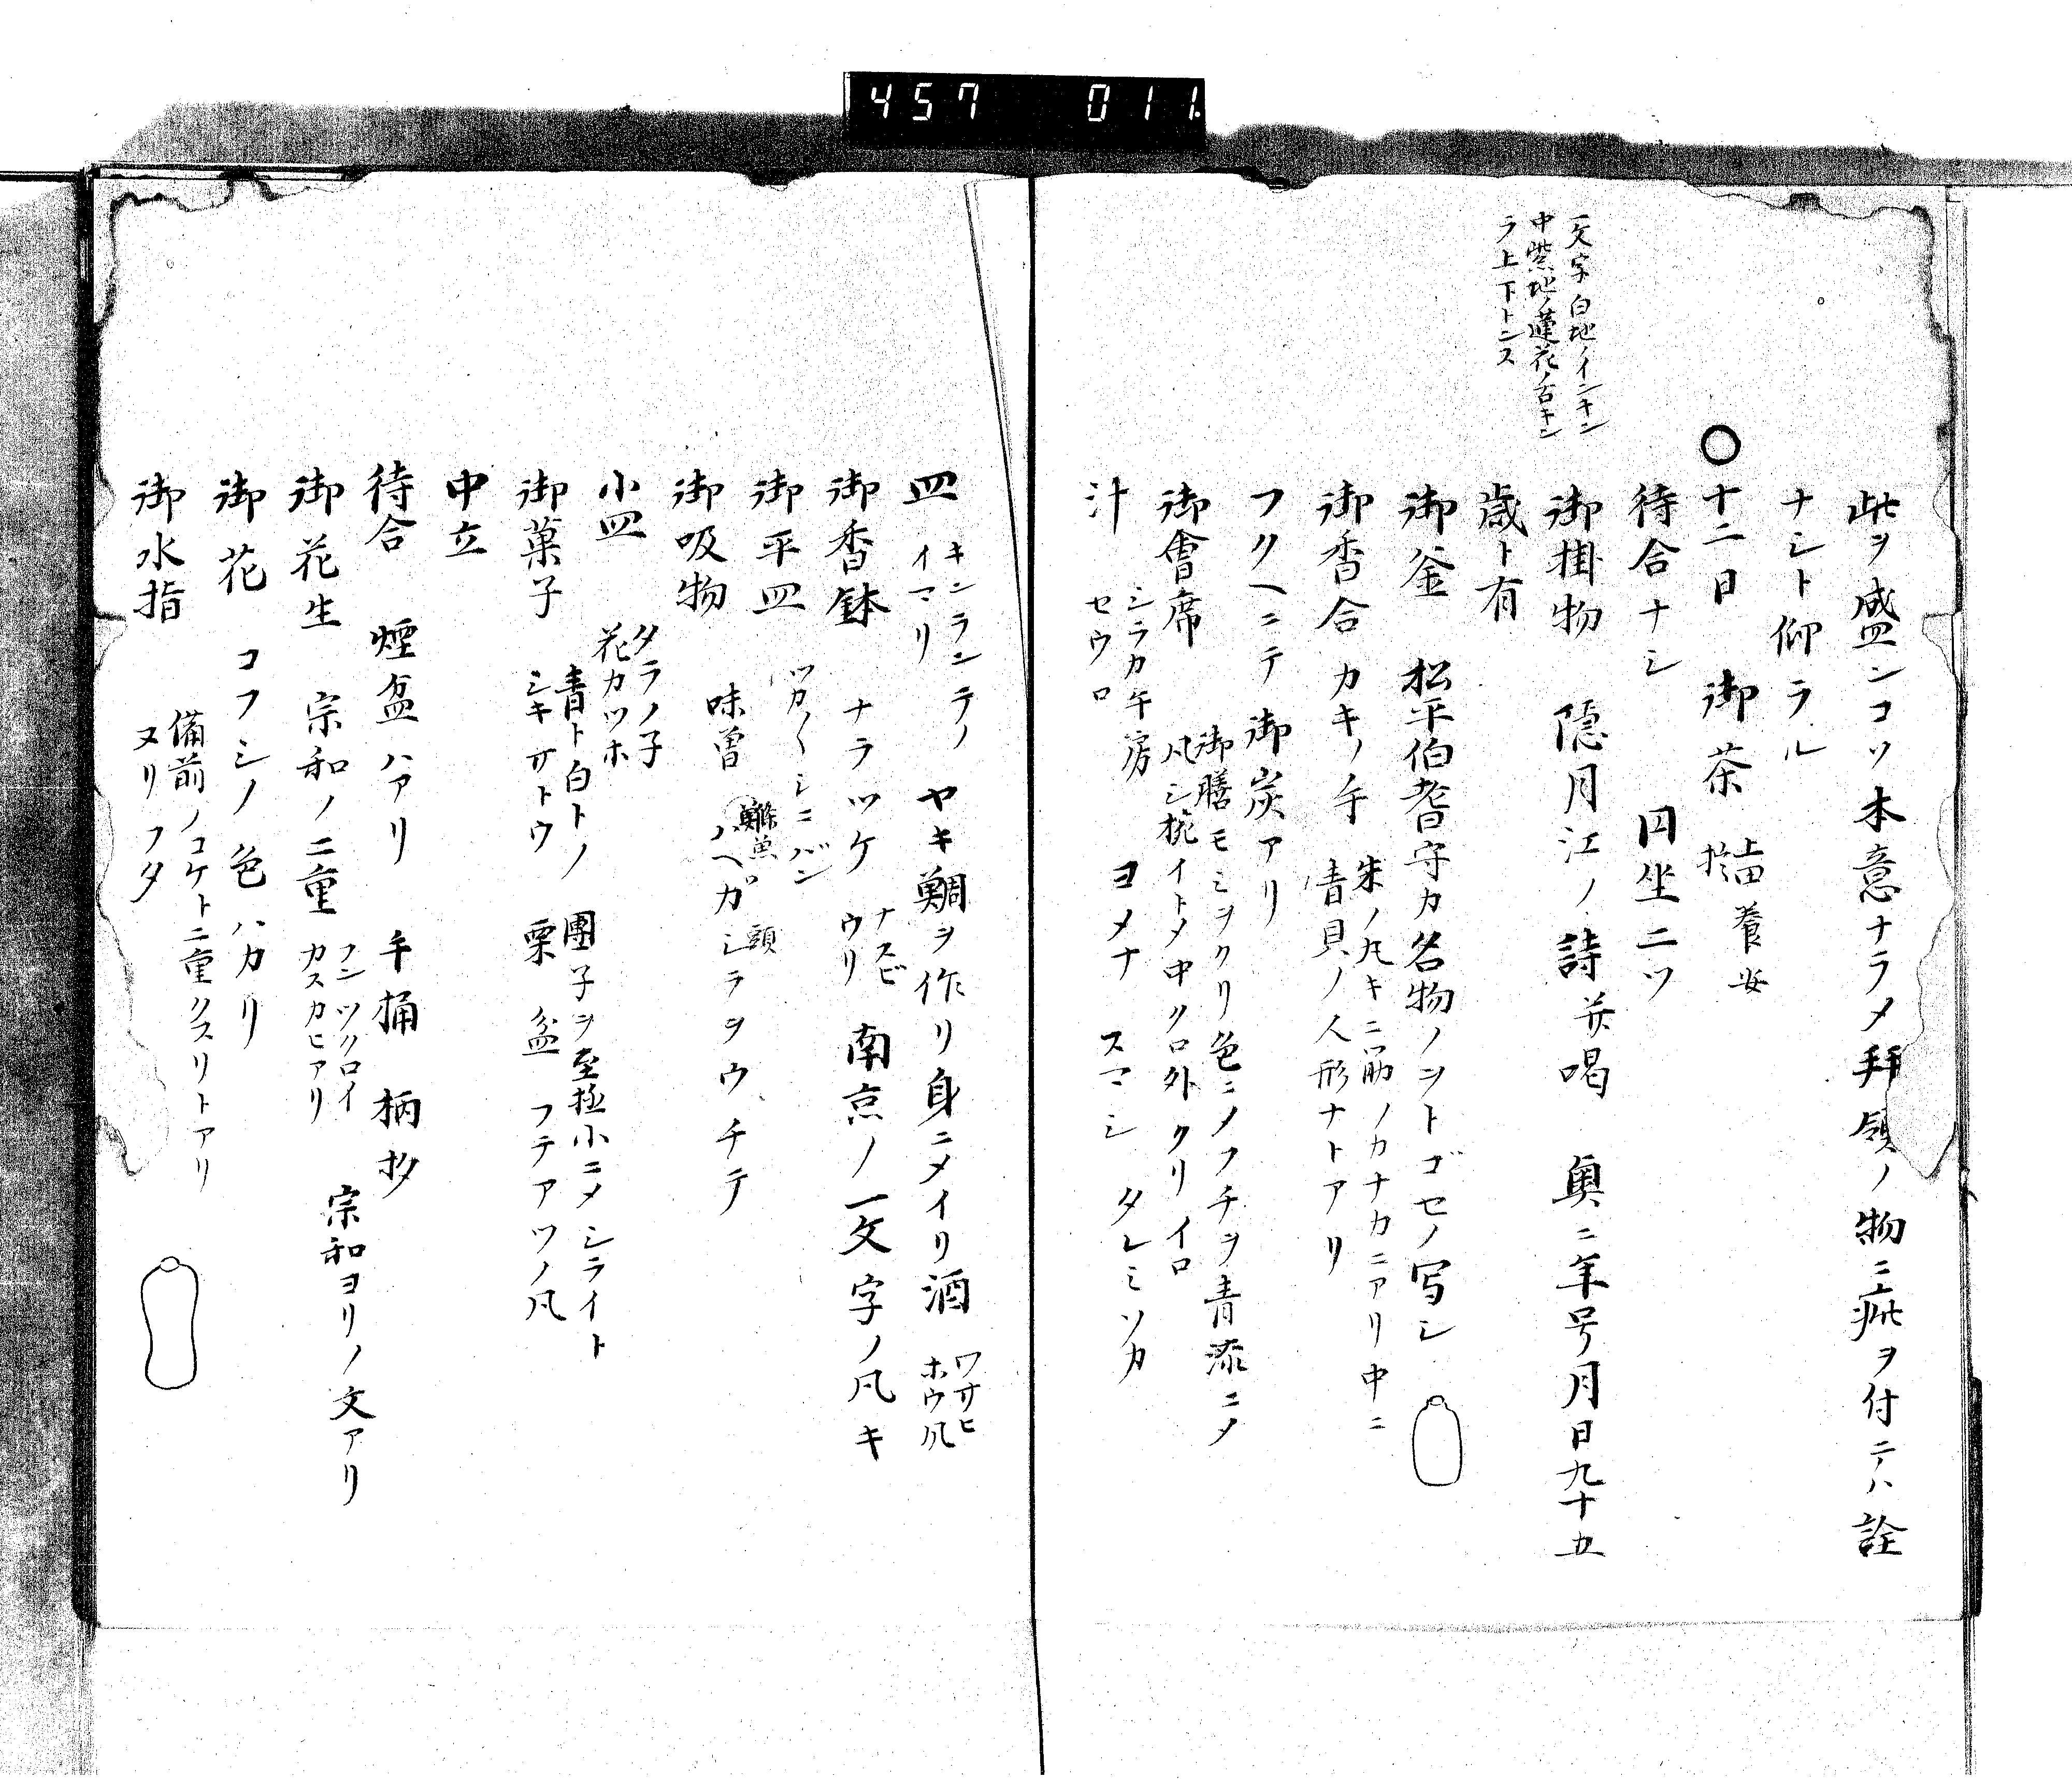 457 011
此ヲ盛ンコソ本意ナラメ拝領ノ物ニ疵ヲ付テハ詮
ナシト仰ラル
○十二日 御茶 上田養安
待合ナシ 円坐二ツ
一文字白地ノインキン
中紫地ノ蓮花ノ古キン
ラ上下トンス
御掛物 隠月江ノ詩并喝 奥ニ年号月日九十五
歳ト有
御釜 松平伯耆守カ名物ノヲトゴセノ写シ
御香合 カキノ手 朱ノ丸キ二筋ノカナカニアリ中ニ
青貝ノ人形ナトアリ
フクヘニテ御炭アリ
御會席 御膳モミヲクリ色ニメフチヲ青漆ニメ
凡シ椀イトメ中クロ外クリイロ
汁 シラカ午房
セウロ ヨメナ スマシ タレミソカ
皿 キンランテノ
イマリ ヤキ鯛ヲ作リ身ニメイリ酒 ワサヒ
ホウ凡
御香鉢 ナラツケ ナスビ
ウリ 南京ノ一文字ノ凡キ
御平皿 ツカ〱シニバン
御吸物 味曽 頭 ハヘガシラヲウチテ
小皿 タラノ子
花カツホ
御菓子 青ト白トノ 團子ヲ至極小ニメシライト
シキサトウ 栗 盆 フテアツノ凡
中立
待合 煙盆ハアリ 手桶 柄杓
御花生 宗和ノ二重 フンツクロイ
カスカヒアリ 宗和ヨリノ文アリ
御花 コフシノ色ハカリ
御水指 備前ノコケト二重クスリトアリ
ヌリフタ